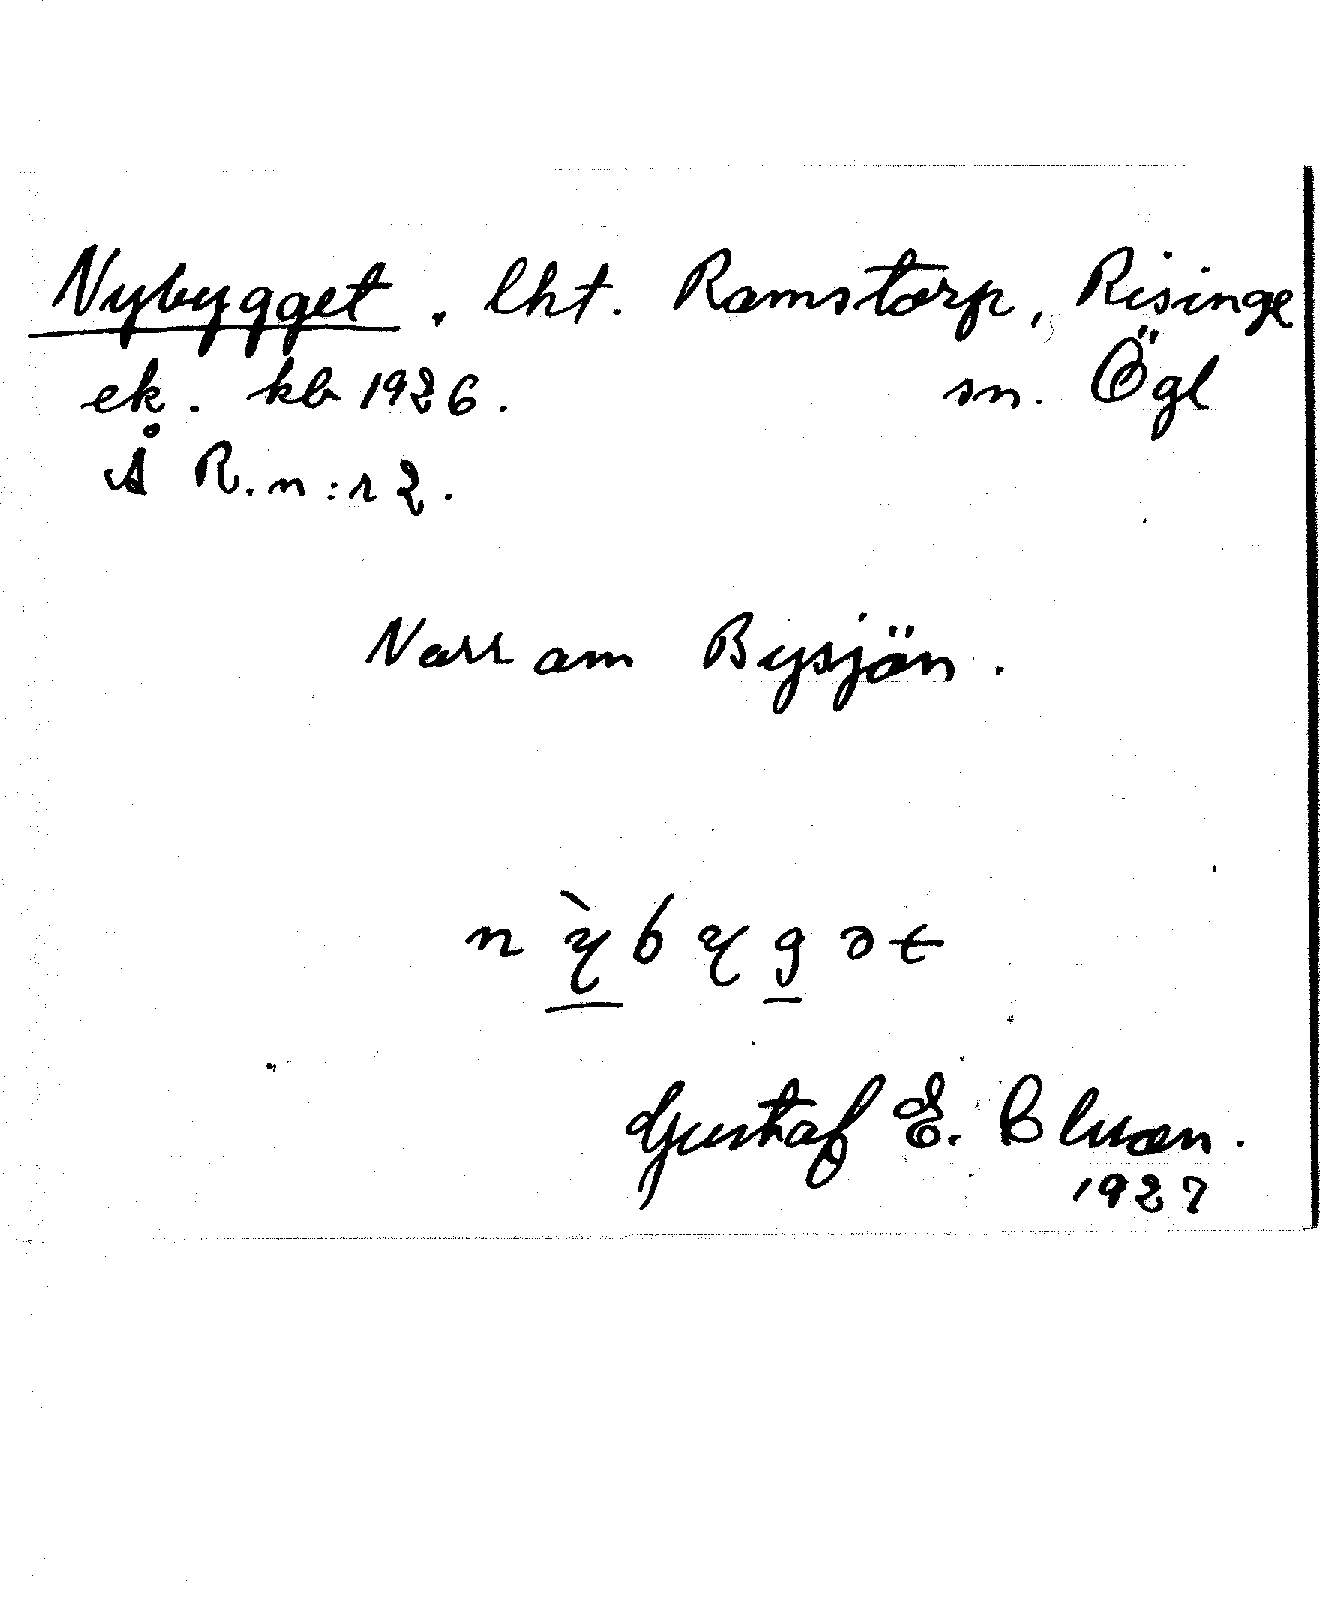 Nybygget, lht. Ramstorp, Risinge
ek. kb 1926. sn. Ögl
Å R.n:r 2.
Norr om Bysjön.
nỳbygət
Gustaf E. Bluon.
1927